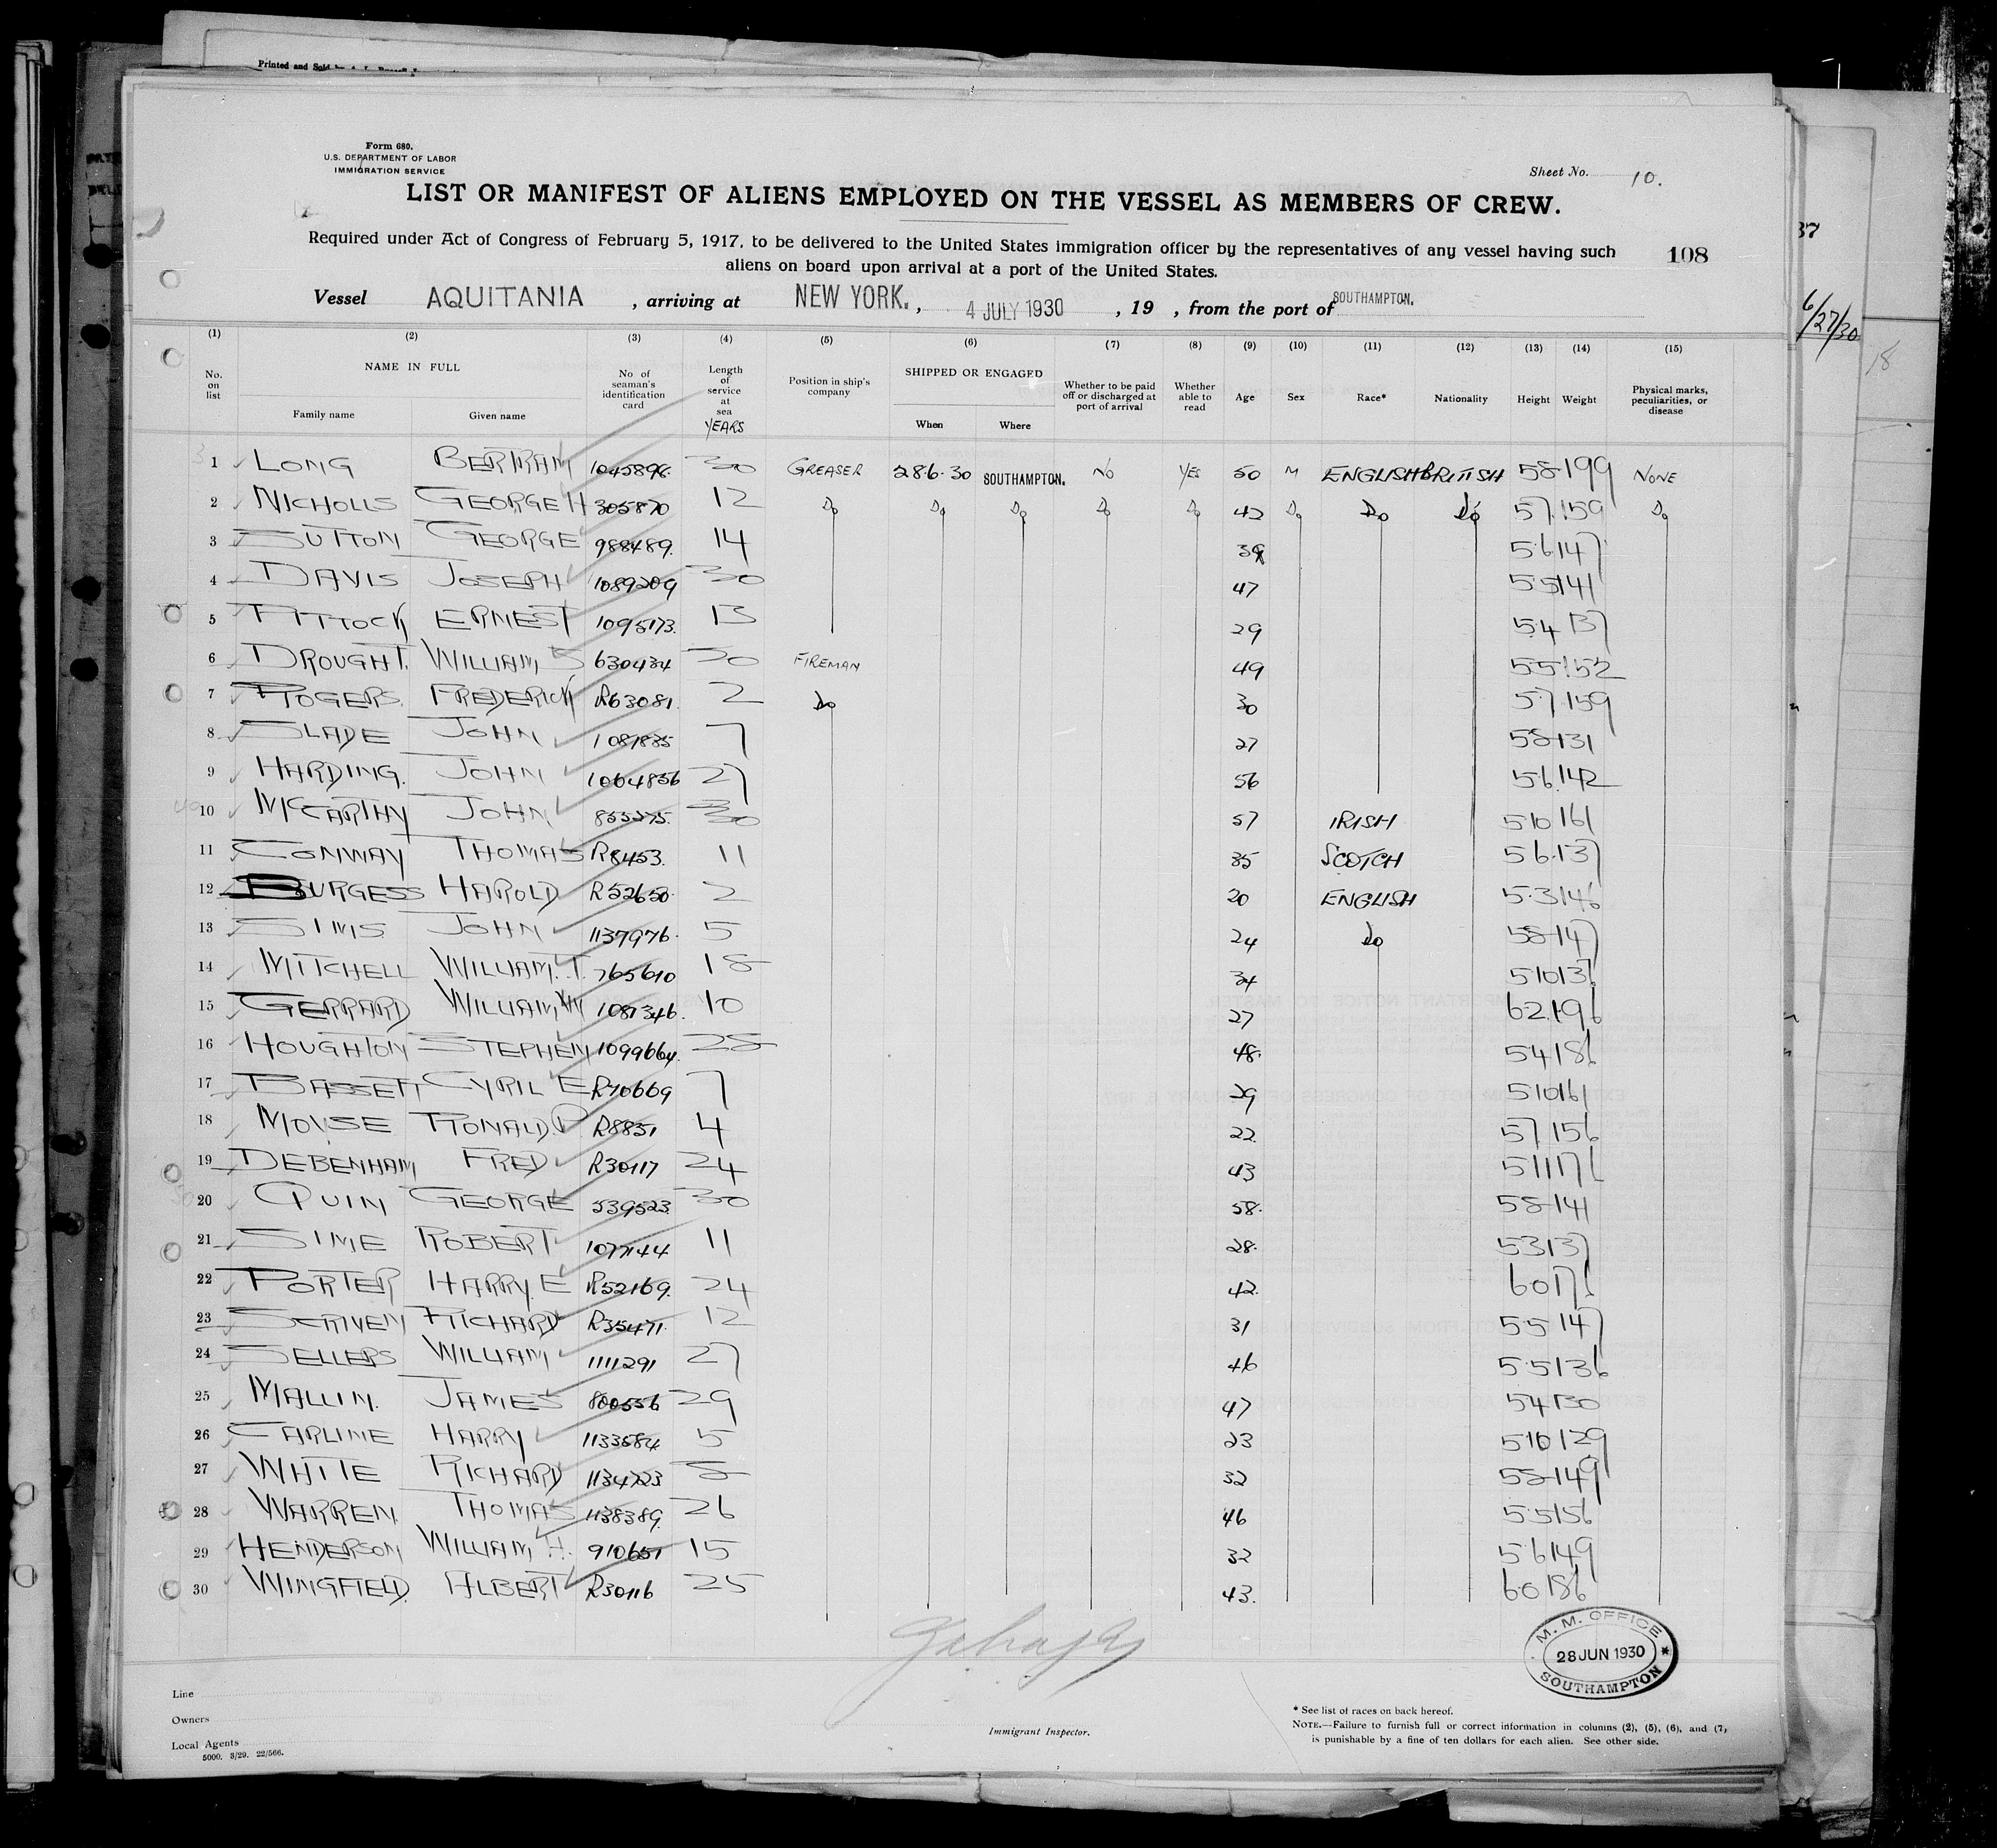 Printed and Sold by
Form 680.
U.S. DEPARTMENT OF LABOR
IMMIGRATION SERVICE
Sheet No. 10.
LIST OR MANIFEST OF ALIENS EMPLOYED ON THE VESSEL AS MEMBERS OF CREW.
Required under Act of Congress of February 5, 1917, to be delivered to the United States immigration officer by the representatives of any vessel having such
aliens on board upon arrival at a port of the United States.
108
Vessel AQUITANIA , arriving at NEW YORK. , 4 JULY 1930 , 19 , from the port of SOUTHAMPTON.
37
6/27/30
18
(1) (2) (3) (4) (5) (6) (7) (8) (9) (10) (11) (12) (13) (14) (15)
No. on list
NAME IN FULL
Family name Given name
No of seaman's identification card
Length of service at sea
YEARS
Position in ship's company
SHIPPED OR ENGAGED
When Where
Whether to be paid off or discharged at port of arrival
Whether able to read
Age Sex Race* Nationality Height Weight
Physical marks, peculiarities, or disease
1 LONG BERTRAM 1045898 30 GREASER 28.6.30 SOUTHAMPTON. NO YES 50 M ENGLISH BRITISH 5 8 199 NONE
2 NICHOLLS GEORGE H 305870 12 Do Do Do Do Do 42 Do Do Do 5 7 159 Do
3 SUTTON GEORGE 988489. 14 39 5 6 147
4 DAVIS JOSEPH 1089209 30 47 5 5 141
5 PITTOCK ERNEST 1095173. 13 29 5 4 137
6 DROUGHT. WILLIAM S 630434 30 FIREMAN 49 5 5 152
7 ROGERS FREDERICK R63081. 2 Do 30 5 7 159
8 SLADE JOHN 1081835 7 27 5 8 131
9 HARDING. JOHN 1004836 27 56 5 6 142
10 McCARTHY JOHN 855275. 30 57 IRISH 5 10 161
11 CONWAY THOMAS R8453. 11 35 SCOTCH 5 6 137
12 BURGESS HAROLD R52650. 2 20 ENGLISH 5 3 146
13 SIMS JOHN 1137976. 5 24 Do 5 8 147
14 MITCHELL WILLIAM. T. 765610 18 34 5 10 137
15 GERRARD WILLIAM W 1081346. 10 27 6 2 196
16 HOUGHTON STEPHEN 1099664. 28 48. 5 4 186
17 BASSETT CYRIL E R70669 7 29 5 10 161
18 MOUSE RONALD. P. R8851 4 22 5 7 156
19 DEBENHAM FRED R30117 24 43 5 11 171
20 QUIN GEORGE 539523 30 58. 5 8 141
21 SIME ROBERT 1077144 11 28. 5 3 137
22 PORTER HARRY. E R52169. 24 42. 6 0 171
23 SCRIVEN RICHARD R35471. 12 31 5 5 147
24 SELLERS WILLIAM 1111291 27 46 5 5 136
25 MALLIN. JAMES 800556 29 47 5 4 130
26 CARLINE HARRY 1133584 5 23 5 10 129
27 WHITE RICHARD 1134723 8 32 5 8 149
28 WARREN. THOMAS 1138389. 26 46 5 5 156
29 HENDERSON WILLIAM H. 910651 15 32 5 6 149
30 WINGFIELD. ALBERT R30116 25 43. 6 0 186
M. M. OFFICE
28 JUN 1930
SOUTHAMPTON
Line
Owners
Local Agents
5000. 3/29. 22/566.
Immigrant Inspector.
* See list of races on back hereof.
NOTE.—Failure to furnish full or correct information in columns (2), (5), (6), and (7),
is punishable by a fine of ten dollars for each alien. See other side.